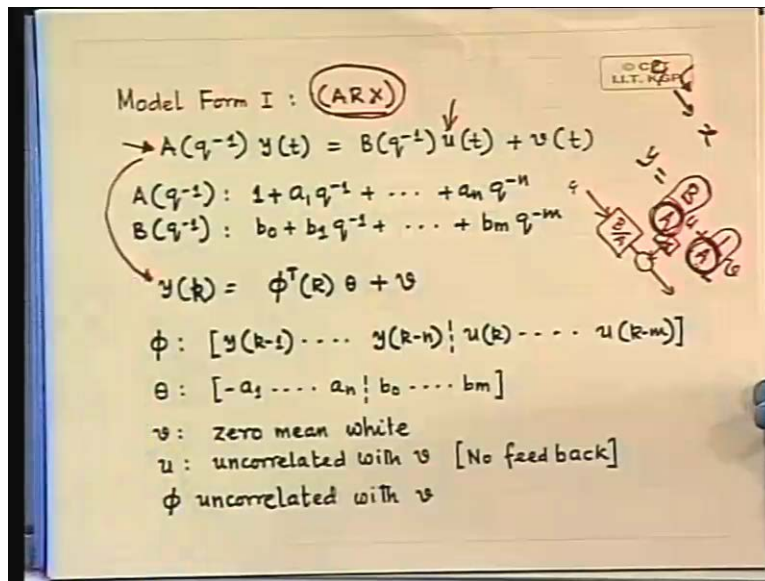 © CET
I.I.T. KGP
Model Form I : (ARX)
A(q⁻¹) y(t) = B(q⁻¹) u(t) + v(t)
A(q⁻¹) : 1 + a₁ q⁻¹ + ... + aₙ q⁻ⁿ
B(q⁻¹) : b₀ + b₁ q⁻¹ + ... + bₘ q⁻ᵐ
y = B/A u + 1/A v
B/A
y(k) = φᵀ(k) θ + v
φ : [y(k-1) .... y(k-n) ¦ u(k) .... u(k-m)]
θ : [-a₁ .... aₙ ¦ b₀ .... bm]
v : zero mean white
u : uncorrelated with v [No feed back]
φ uncorrelated with v